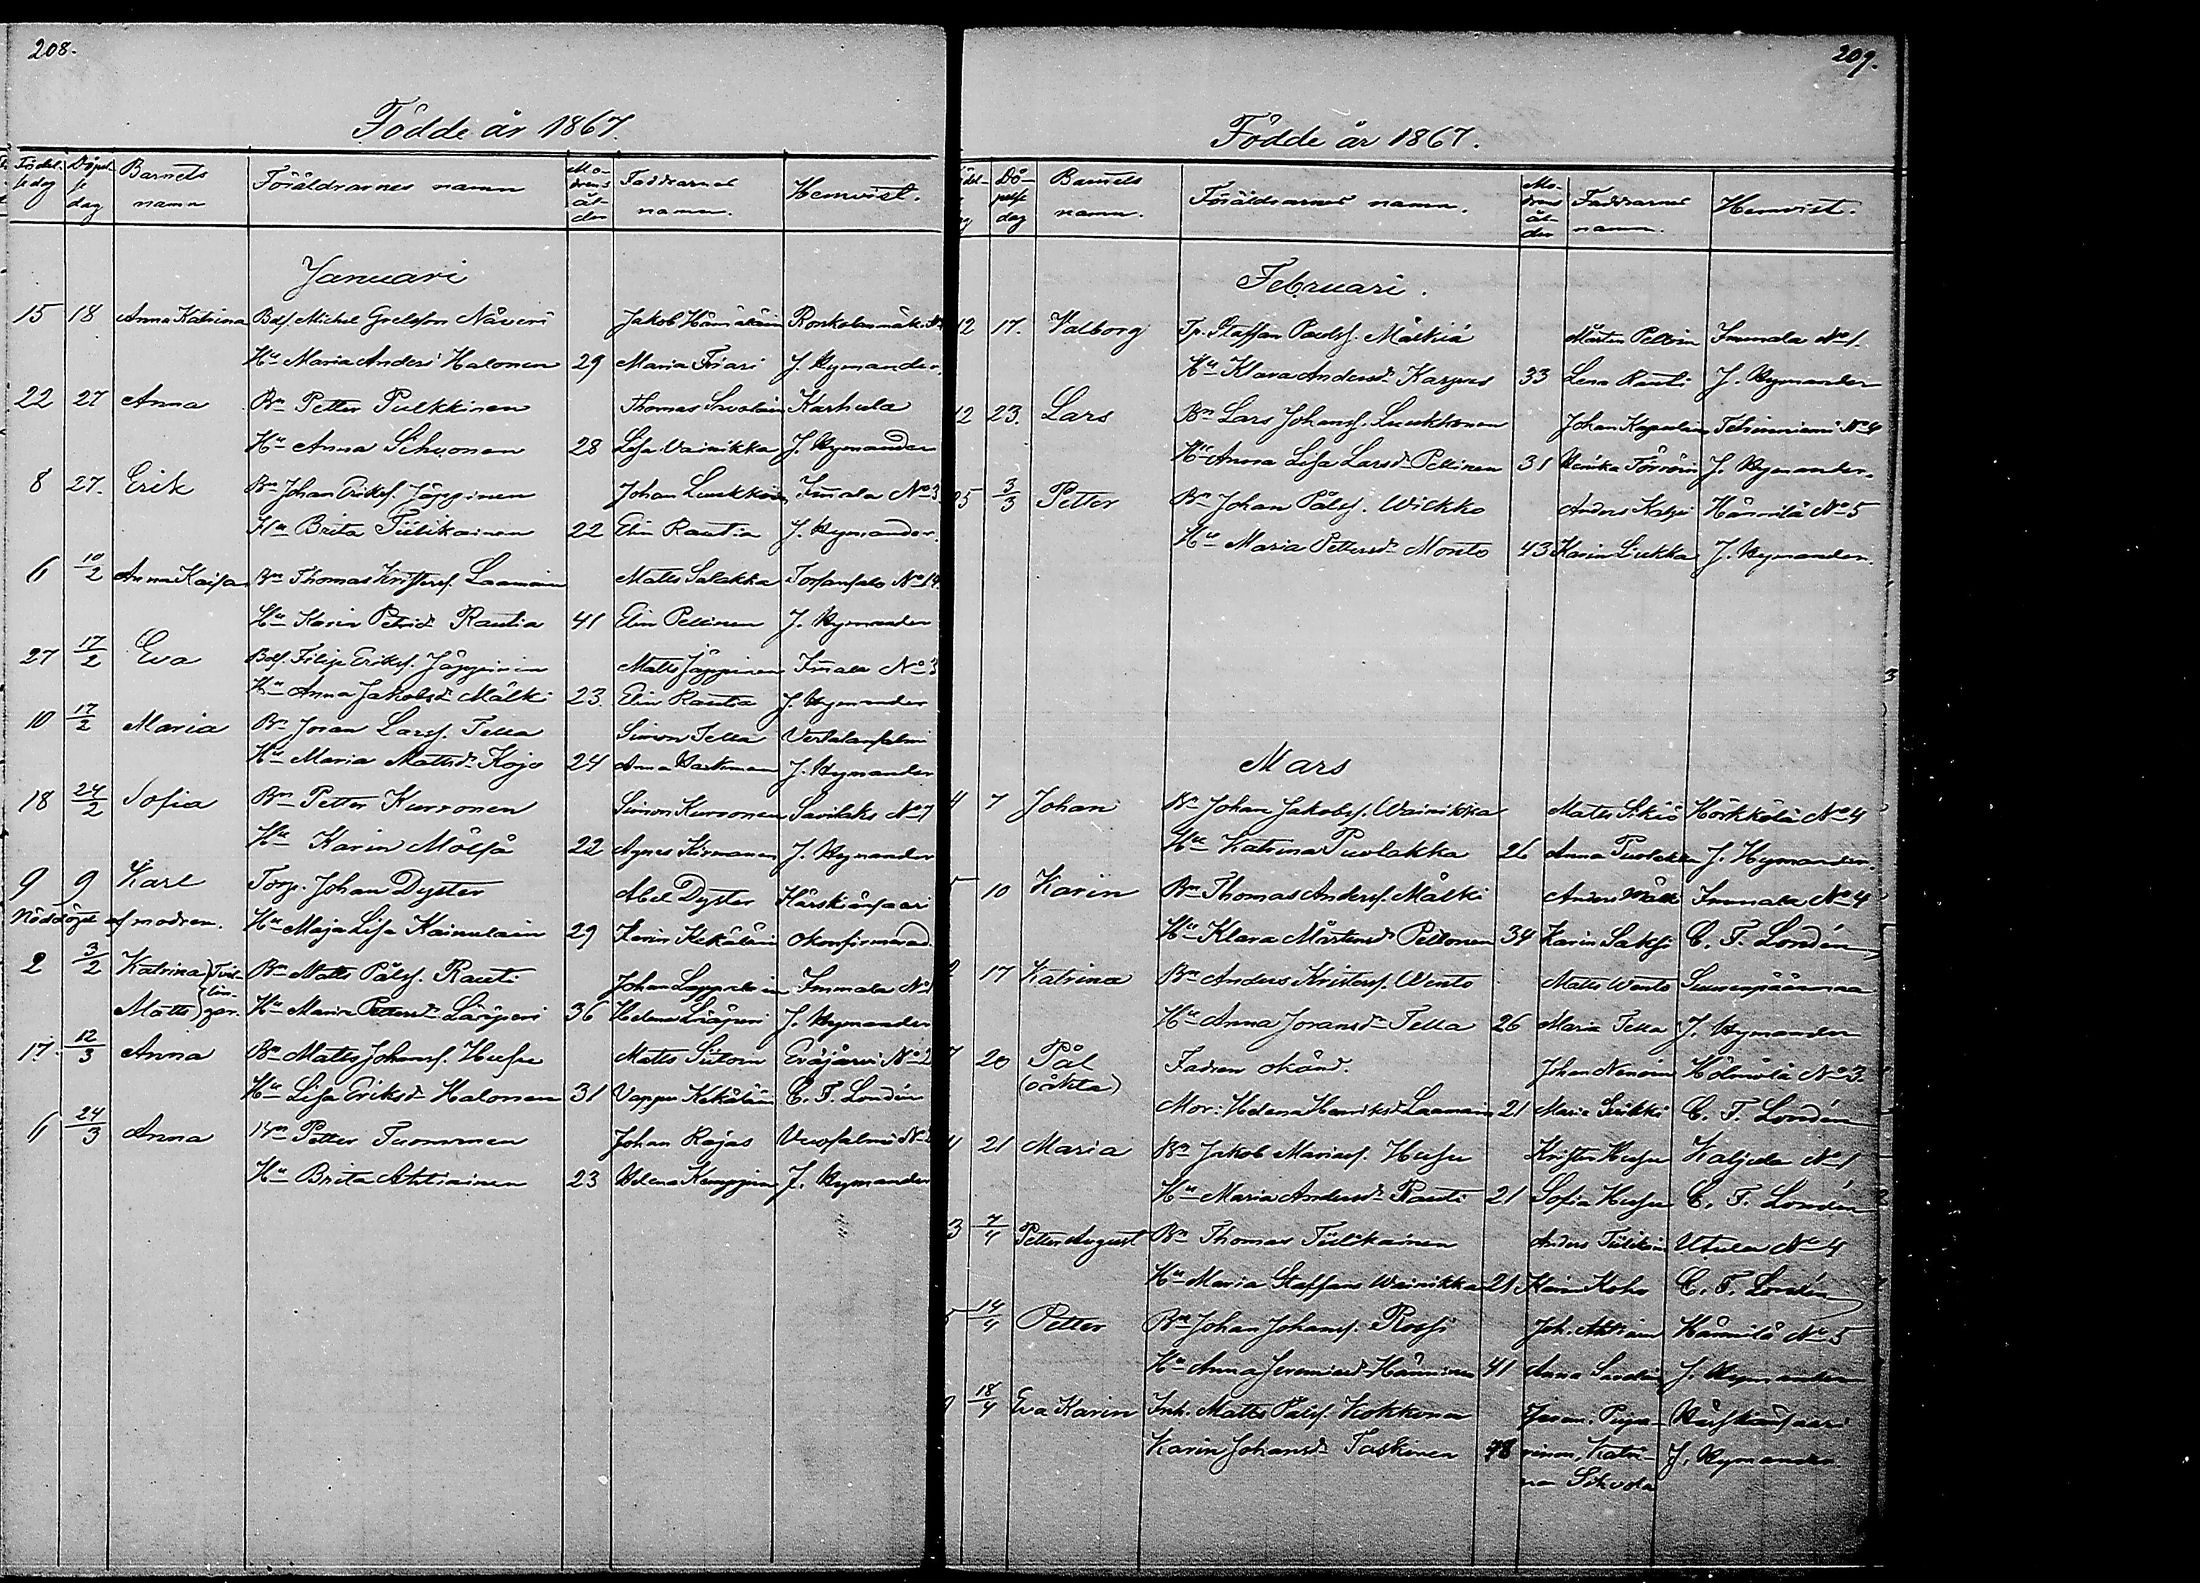 208.
Födde år 1867.
Födel- se dag Döpel se dag Barnets namn Föräldrarnes namn Mo- drens ål- der Faddrarnes namn. Hemvist.
Januari
15 18 Anna Katrina Bdf. Michel Grelsson Näveri Jakob Hämäläin
Hu Maria Anders Halonen 29 Maria Friari J. Hymander.
22 27 Anna Bn Petter Pulkkinen Thomas Karhula
Hu Anna Sihvonen 28 Lisa Vainikka J. Hymander
8 27. Erik Bn Johan Eriksf. Jäppinen Johan Luukkain Imala No 3
Hu Brita Tiilikainen 22 Elin Rautia J. Hymander.
6 10/2 Anna Kaisa Bn Thomas Kristersf. Laamain Matts Salakka Torsansalo No 14.
Hu Karin Petrisdr Rautia 41 Elin Pellinen J. Hymander
27 17/2 Eva Bdf. Filip Eriksf. Jäppinen Matts Jäppinen Imala No 3
Hu Anna Jakobsdr Mälki 23. Elin Rautia J. Hymander
10 17/2 Maria Bn Joran Larsf. Tella Simon Tella
Hu Maria Mattsdr Kojo 24 Anna J. Hymander
18 24/2 Sofia Bn Petter Kurronen Simon Kurronen Savilaks No 7
Hu Karin Mölsä 22 Agnes Hirmanen J. Hymander
9 9 Karl Torp. Johan Dyster Abel Dyster Härskiänsaari
Nöddöpt af modren. Hu Maja Lisa Kainulain 29 Karin Kekäläin okonfirmerad.
2 3/2 Katrina } Tvil- Bn Matts Pålsf. Rauti Johan Lappalain Immala No 1
Matts } lin- gar. Hu Maria Pettersdr Lääperi 36 Helena Lääperi J. Hymander
17. 12/3 Anna Bn Matts Johansf. Husu Matts Siitoin Eräjärvi No 2
Hu Lisa Eriksdr Halonen 31 Vappu Kekäläin C. F. Londén
6 24/3 Anna Bn Petter Tuominen Johan Rajas
Hu Brita Ahtiainen 23 Helena Kemppin J. Hymander
209.
Födde år 1867.
Dö- pelse dag Barnets namn. Föräldrarnes namn. Mo- drens ål- der Faddrarnes namn. Hemvist.
Februari.
12 17. Valborg Tp. Staffan Paulsf. Mälkiä Mårten Peltoin Immala No 1.
Hu Klara Andersdr Kaspers 33 Lena Rauti J. Hymander
12 23. Lars Bn Lars Johansf. Luukkonen Johan
Hu Anna Lisa Larsdr Pellinen 31 Henrika Törröin J. Hymander.
25 3/3 Petter Bn Johan Pålsf. Wickko Anders Hännilä No 5
Hu Maria Pettersdr Monto 43 Karin Liukka J. Hymander.
Mars
4 7 Johan Bn Johan Jakobsf. Wainikka Matts Sikiö Körkkölä No 4
Hu Katrina Puolakka 26 Anna Puolakka J. Hymander.
5 10 Karin Bn Thomas Andersf. Mälki Anders Mälki Immala No 4
Hu Klara Mårtensdr Peltonen 34 Karin Saksi C. F. Londén
17 Katrina Bn Anders Kristersf. Wento Matts Wento Suurenpäänmaa
Hu Anna Joransdr Tella 26 Maria Tella J. Hymander
7 20 Pål Fadren okänd. Johan Nenoin Hölmölä No 3.
(oäkta) Mor: Helena Henriksdr Laamain 21 Maria C. F. Londén
21 Maria Bn Jakob Mariasf. Husu Krister Husu Kaljula No 1
Hu Maria Andersdr Rauti 21 Sofia Husu C. F. Londén
3 7/4 Petter August Bn Thomas Tiilikainen Anders Tiilikain Utula No 4
Hu Maria Staffans Wainikka 21 Karin Koho C. F. Londén
5 14/4 Petter Bn Johan Johansf. Rossi Joh. Ahtiain Hännilä No 5
Hu Anna Jeremiasdr Hänninen 41 Anna J. Hymander
18/4 Eva Karin Inh. Matts Pålsf. Kokkonen Joran Pupu- Härskiänsaari
Karin Johansdr Taskinen 48 nina, Katri- J. Hymander
na Sihvola